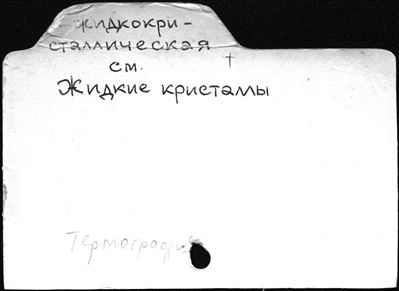 -жидкокри-
сталлическая
см.
Жидкие кристаллы
Термография